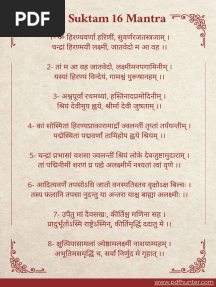 PDF
Suktam 16 Mantra
हिरण्यवर्णां हरिणीं, सुवर्णरजतस्त्रजाम् ।
चन्द्रां हिरण्यमयीं लक्ष्मीं, जातवेदो म आ वह ।।
2- तां म आ वह जातवेदो, लक्ष्मीमनपगामिनीम् ।
यस्यां हिरण्यं विन्देयं, गामश्वं पुरूषानहम् ।।
3- अश्वपूर्वां रथमध्यां, हस्तिनादप्रमोदिनीम् ।
श्रियं देवीमुप ह्वये, श्रीर्मा देवी जुषताम् ।।
4- कां सोस्मितां हिरण्यप्राकारामार्द्रां ज्वलन्तीं तृप्तां तर्पयन्तीम् ।
पद्मेस्थितां पद्मवर्णां तामिहोप ह्वये श्रियम् ।।
5- चन्द्रां प्रभासां यशसा ज्वलन्तीं श्रियं लोके देवजुष्टामुदाराम् ।
तां पद्मिनीमीं शरणं प्र पद्ये अलक्ष्मीर्मे नश्यतां त्वां वृणे ।।
6- आदित्यवर्णे तपसोऽधि जातो वनस्पतिस्तव वृक्षोऽक्ष बिल्वः ।
तस्य फलानि तपसा नुदन्तु या अन्तरा याश्च बाह्या अलक्ष्मीः ।।
7- उपैतु मां दैवसखः, कीर्तिश्च मणिना सह ।
प्रादुर्भूतोऽस्मि राष्ट्रेऽस्मिन्, कीर्तिमृद्धिं ददातु मे ।।
8- क्षुत्पिपासामलां ज्येष्ठामलक्ष्मीं नाशयाम्यहम् ।
अभूतिमसमृद्धिं च, सर्वां निर्णुद मे गृहात् ।।
www.pdfhunter.com